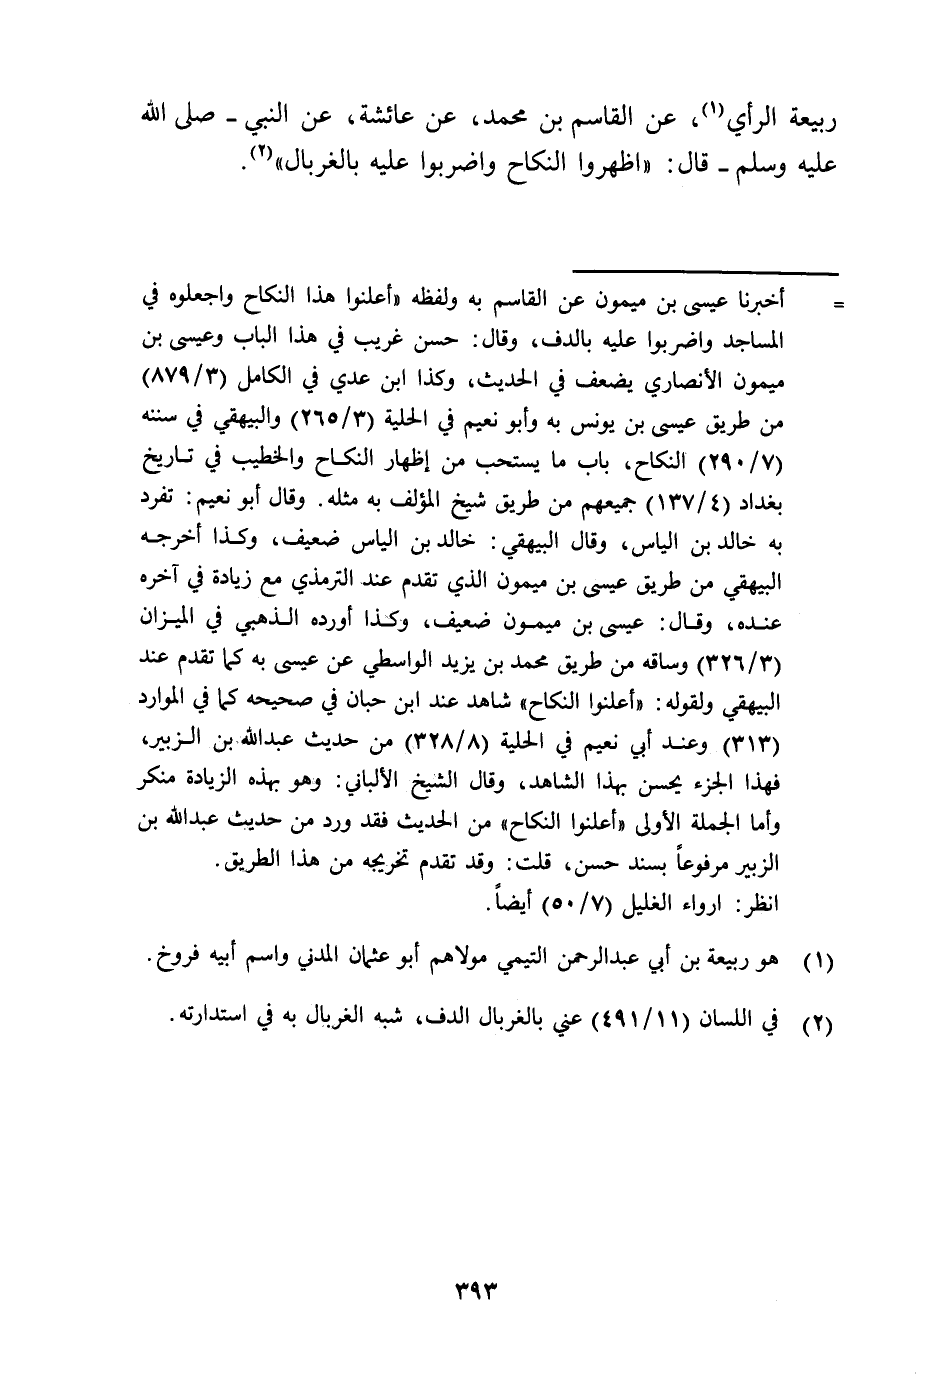 ربيعة الرأي(١)، عن القاسم بن محمد، عن عائشة، عن النبي ـ صلى الله
عليه وسلم ـ قال: «اظهروا النكاح واضربوا عليه بالغربال»(٢).
= أخبرنا عيسى بن ميمون عن القاسم به ولفظه «أعلنوا هذا النكاح واجعلوه في
المساجد واضربوا عليه بالدف، وقال: حسن غريب في هذا الباب وعيسى بن
ميمون الأنصاري يضعف في الحديث، وكذا ابن عدي في الكامل (٨٧٩/٣)
من طريق عيسى بن يونس به وأبو نعيم في الحلية (٢٦٥/٣) والبيهقي في سننه
(٢٩٠/٧) النكاح، باب ما يستحب من إظهار النكاح والخطيب في تاريخ
بغداد (١٣٧/٤) جميعهم من طريق شيخ المؤلف به مثله. وقال أبو نعيم: تفرد
به خالد بن الياس، وقال البيهقي: خالد بن الياس ضعيف، وكذا أخرجه
البيهقي من طريق عيسى بن ميمون الذي تقدم عند الترمذي مع زيادة في آخره
عنده، وقال: عيسى بن ميمون ضعيف، وكذا أورده الذهبي في الميزان
(٣٢٦/٣) وساقه من طريق محمد بن يزيد الواسطي عن عيسى به كما تقدم عند
البيهقي ولقوله: «أعلنوا النكاح» شاهد عند ابن حبان في صحيحه كما في الموارد
(٣١٣) وعند أبي نعيم في الحلية (٣٢٨/٨) من حديث عبدالله بن الزبير،
فهذا الجزء يحسن بهذا الشاهد، وقال الشيخ الألباني: وهو بهذه الزيادة منكر
وأما الجملة الأولى «أعلنوا النكاح» من الحديث فقد ورد من حديث عبدالله بن
الزبير مرفوعاً بسند حسن، قلت: وقد تقدم تخريجه من هذا الطريق.
انظر: ارواء الغليل (٥٠/٧) أيضاً.
(١) هو ربيعة بن أبي عبدالرحمن التيمي مولاهم أبو عثمان المدني واسم أبيه فروخ.
(٢) في اللسان (٤٩١/١١) عني بالغربال الدف، شبه الغربال به في استدارته.
٣٩٣